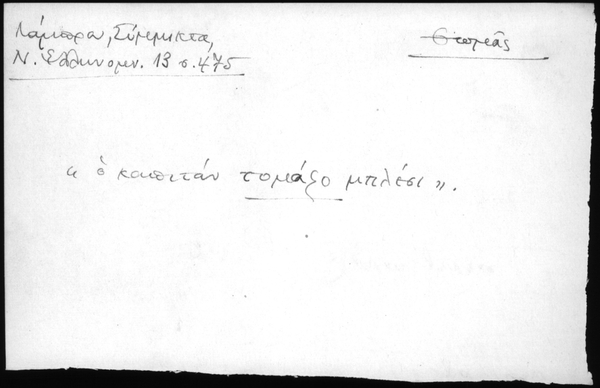 Λάμπρου, Σύμμικτα,
Ν. Ἑλληνομν. 13 σ. 475
Θωμᾶς
« ὁ καπιτάν τομάζο μπλέσι ».